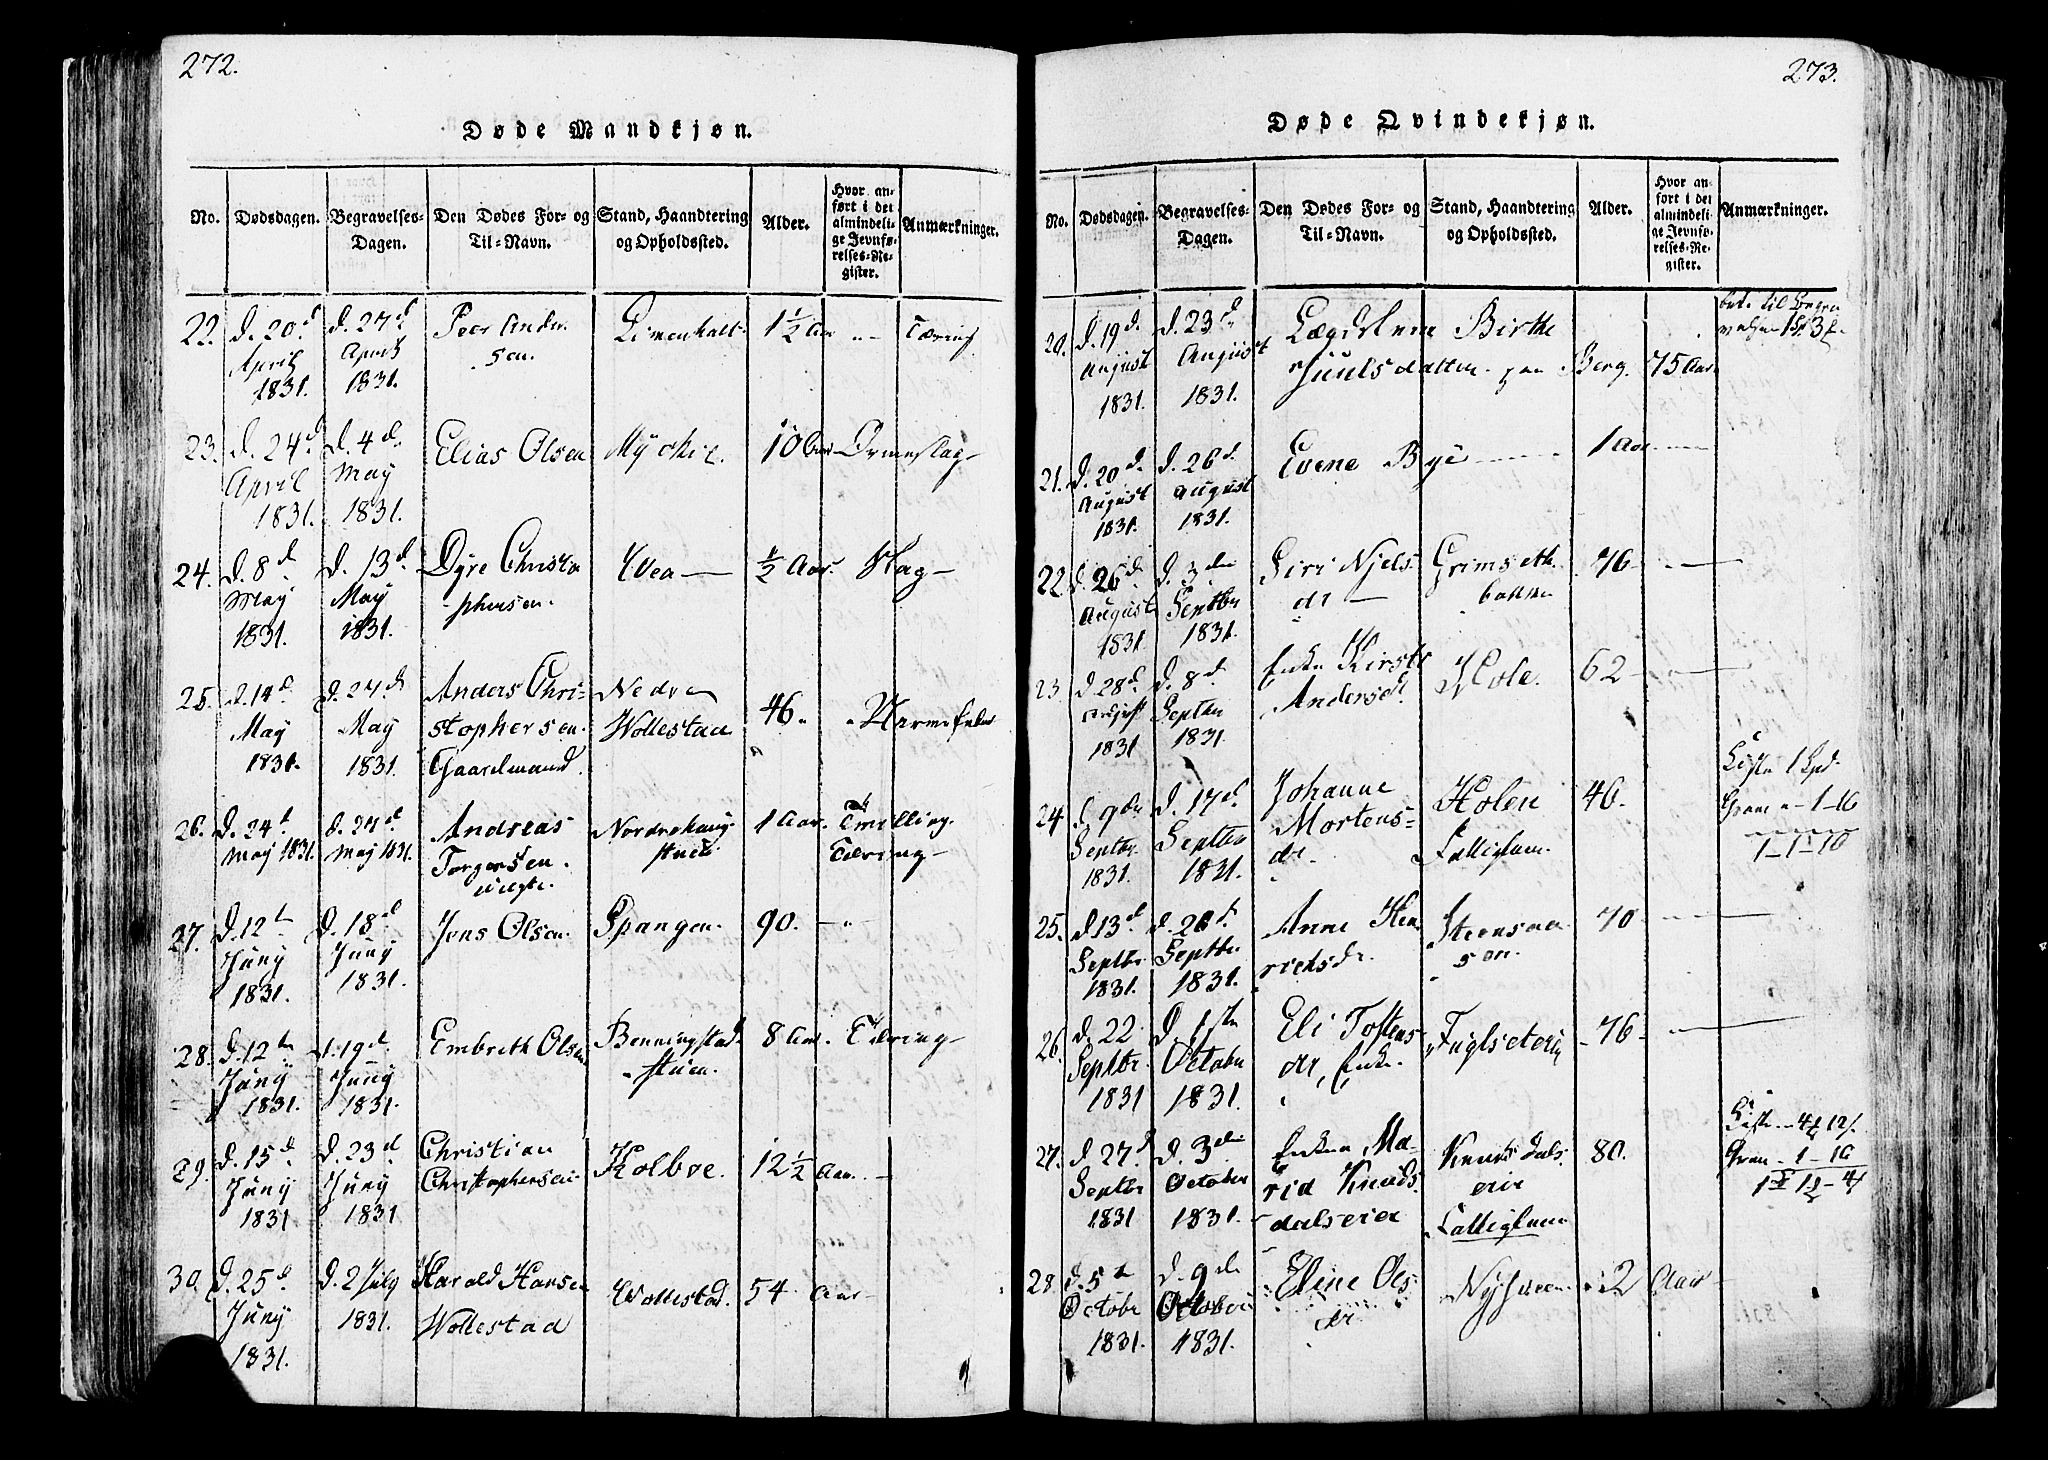 272.
Døde Mandkjøn.
No. Dødsdagen. Begravelses-Dagen. Den Dødes For- og Til-Navn. Stand, Haandtering og Opholdssted. Alder. Hvor anført i det almindelige Jevnførelses-Register. Anmærkninger.
22. d. 20d April 1831. d. 27d April 1831. Peer Andersen. 1½ Aar Tæring
23. d. 24d April 1831. d. 4d. May 1831. Elias Olsen 10 Aar
24. d. 8d. May 1831. d. 13d May 1831. Dyre Christophersen. ½ Aar. Slag
25. d. 14d May 1831. d. 27d May 1831. Anders Christophersen. Gaardmand. Nedre Wollestad 46.
26. d. 24d May 1831. d. 27d May 1831. Andreas Torgersen. uægte. Nordrehaugstuen 1 Aar. Tvilling. Tæring
27. d. 12te Juny 1831. d. 18d Juny 1831. Jens Olsen. Spangen. 90.
28. d. 12te Juny 1831. d. 19d. Juny 1831. Embreth Olsen Benningstadstuen. 8 Aar. Tæring
29. d. 15d. Juny 1831 d. 23d Juny 1831 Christian Christophersen Kolbøe. 12½ Aar.
30. d. 25d Juny 1831. d. 2 July 1831. Harald Hansen Wollestad Wollestad. 54 Aar
273.
Døde Qvindekjøn.
No. Dødsdagen. Begravelses-Dagen. Den Dødes For- og Til-Navn. Stand, Haandtering og Opholdssted. Alder. Hvor anført i det almindelige Jevnførelses-Register. Anmærkninger.
20. d. 19d. August 1831. d. 23d August 1831. Lægdslem Birthe Juulsdatter paa Berg. 75 Aar
21. d. 20d. August 1831. d. 26d. August 1831. Evene Bye 1 Aar
22. d. 26d. August 1831 d. 3die Septbr 1831. Siri Njelsdr Grimsethbakken 76
23. d. 28d. August 1831 d. 8d. Septbr 1831. Enke Kirste Andersdr Hole. 62
24. d. 9de Septbr. 1831. d. 17d. Septbr 1831. Johanne Mortensdr. Holen Fattiglem. 46. Kiste 1 Spd. Grav 1-16
25. d. 13d Septbr 1831. d. 20d. Septbr 1831. Anne Henrichsdr. Steensaasen. 70
26. d. 22 Septbr 1831 d. 1ste October 1831. Eli Tostensdr, Enke. Fuglseterie 76
27. d. 27d Septbr 1831 d. 3die October 1831. Enken Marid Knudsdalseier Knudsdalseier Fattiglem 80. Kiste Grav 1-16
28. d. 5te October 1831. d. 9de October 1831. Eline Olsdr Nysveen 2 Aar